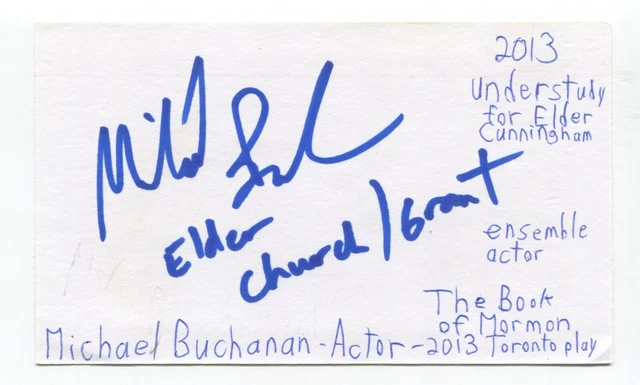 2013
Understudy
for Elder
Cunningham
Elder
Church/Grant
ensemble
actor
The Book
of Mormon
Michael Buchanan - Actor - 2013 Toronto play